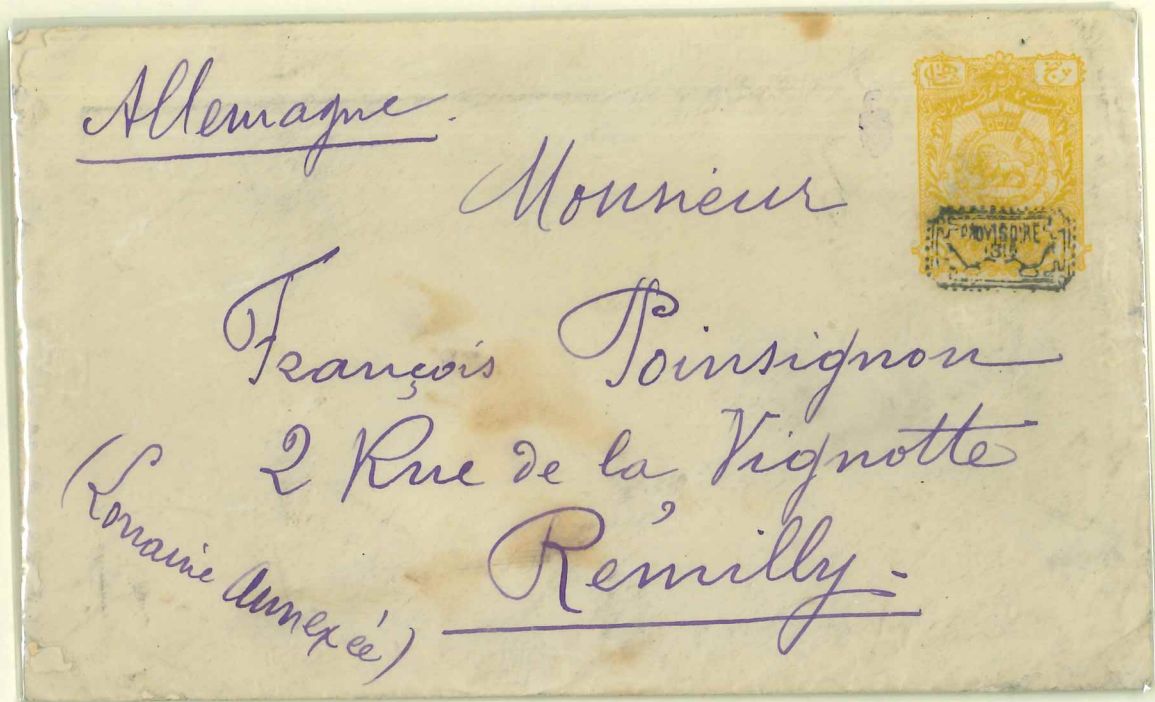 Allemagne.
Monsieur
François Poinsignon
2 Rue de la Vignotte
Rémilly.
(Lorraine Annexée)
PROVISOIRE